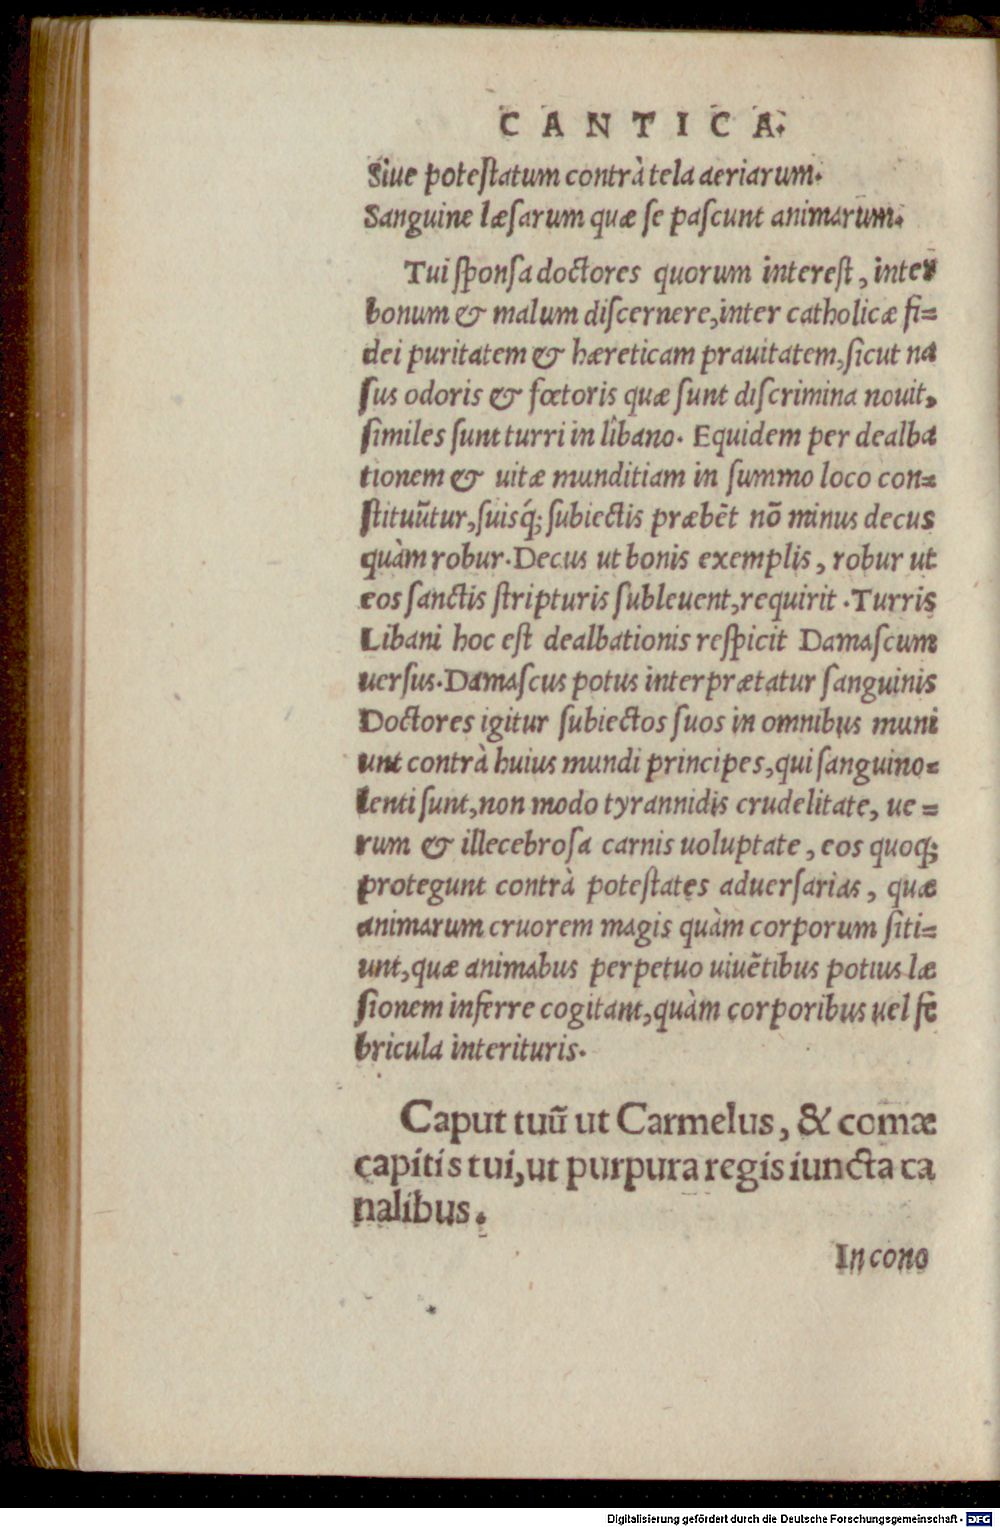 CANTICA.
Siue poteſtatum contrà tela aeriarum.
Sanguine læſarum quæ ſe paſcunt animarum.
Tui ſponſa doctores quorum intereſt, inter
bonum & malum diſcernere, inter catholicæ fi=
dei puritatem & hæreticam prauitatem, ſicut na
ſus odoris & fœtoris quæ ſunt diſcrimina nouit,
ſimiles ſunt turri in libano. Equidem per dealba
tionem & uitæ munditiam in ſummo loco con=
ſtituũtur, ſuisq́; ſubiectis præbẽt nõ minus decus
quàm robur. Decus ut bonis exemplis, robur ut
eos ſanctis ſtripturis ſubleuent, requirit. Turris
Libani hoc eſt dealbationis reſpicit Damaſcum
uerſus. Damaſcus potus interprætatur ſanguinis
Doctores igitur ſubiectos ſuos in omnibus muni
unt contrà huius mundi principes, qui ſanguino=
lenti ſunt, non modo tyrannidis crudelitate, ue=
rum & illecebroſa carnis uoluptate, eos quoq;
protegunt contrà poteſtates aduerſarias, quæ
animarum cruorem magis quàm corporum ſiti=
unt, quæ animabus perpetuo uiuẽtibus potius læ
ſionem inferre cogitant, quàm corporibus uel fe
bricula interituris.
Caput tuũ ut Carmelus, & comæ
capitis tui, ut purpura regis iuncta ca
nalibus.
In cono
Digitalisierung gefördert durch die Deutsche Forschungsgemeinschaft - DFG